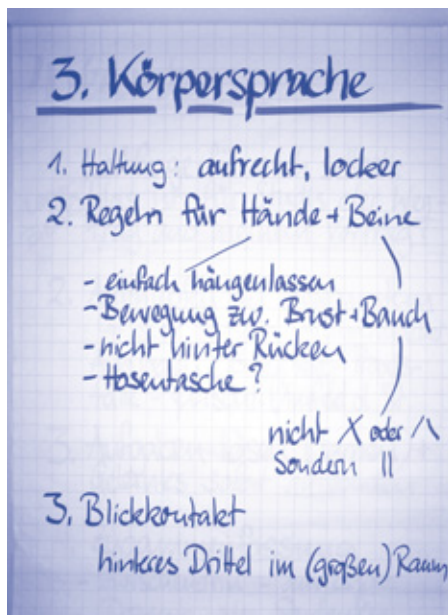 3. Körpersprache
1. Haltung: aufrecht, locker
2. Regeln für Hände + Beine
- einfach hängenlassen
- Bewegung zw. Brust + Bauch
- nicht hinter Rücken
- Hosentasche?
nicht X oder /\
Sondern ||
3. Blickkontakt
hinteres Drittel im (großen) Raum